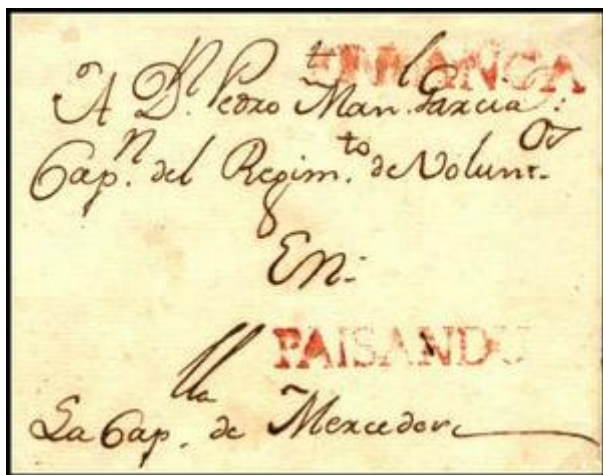 FRANCA
A Dn. Pedro Manl. Garcia:
Capn. del Regimto. de Volunt.os
En.
PAISANDU
La Caplla. de Mercedes